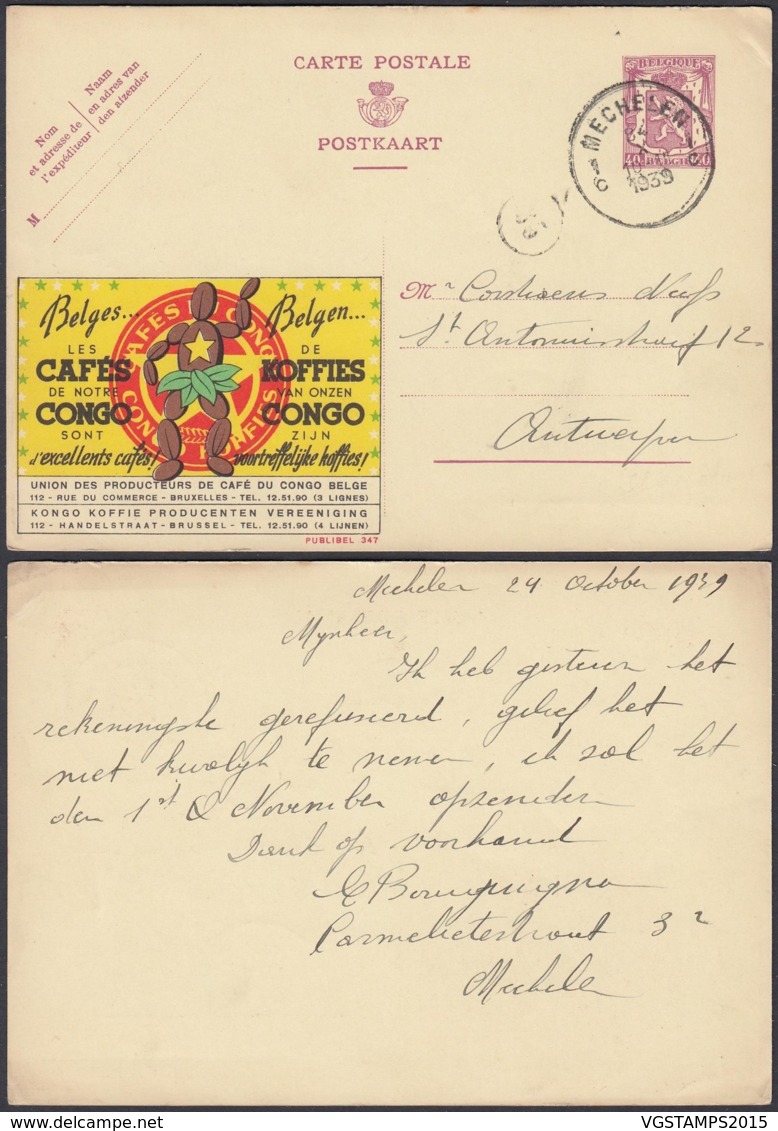 CARTE POSTALE
POSTKAART
Nom
et adresse de
l'expéditeur
Naam
en adres van
den afzender
M
BELGIQUE
40 BELGIË 40
6 MECHELEN 6
1939
Belges...
LES
CAFÉS
DE NOTRE
CONGO
SONT
d'excellents cafés!
CAFES DU CONGO
CONGO KOFFIES
Belgen...
DE
KOFFIES
VAN ONZEN
CONGO
ZIJN
voortreffelijke koffies!
UNION DES PRODUCTEURS DE CAFÉ DU CONGO BELGE
112 - RUE DU COMMERCE - BRUXELLES - TEL. 12.51.90 (3 LIGNES)
KONGO KOFFIE PRODUCENTEN VEREENIGING
112 - HANDELSTRAAT - BRUSSEL - TEL. 12.51.90 (4 LIJNEN)
PUBLIBEL 347
Mr
St 12
Antwerpen
Mechelen 24 October 1939
Mynheer,
Ik heb gisteren het
gerefuseerd, gelief het
niet kwalyk te nemen, ik zal het
den 1st November opzenden
Dank op voorhand
3
Mechelen
VGSTAMPS2015